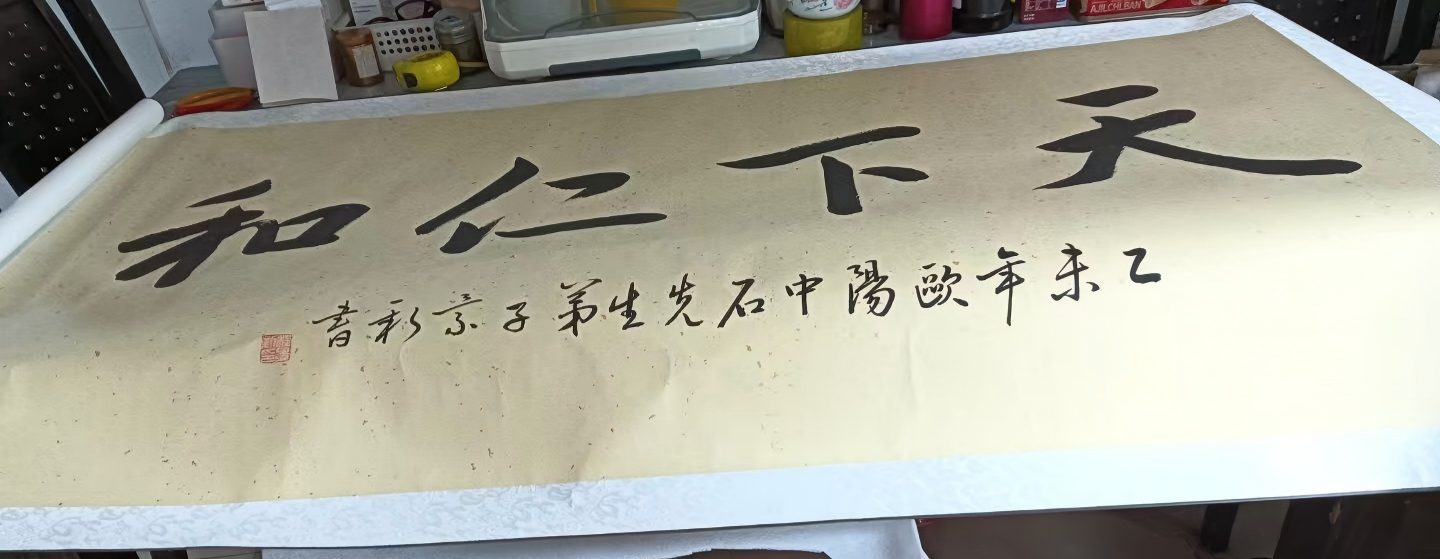 天下仁和
乙未年歐陽中石先生弟子京彩書
AJILCHI.BAN